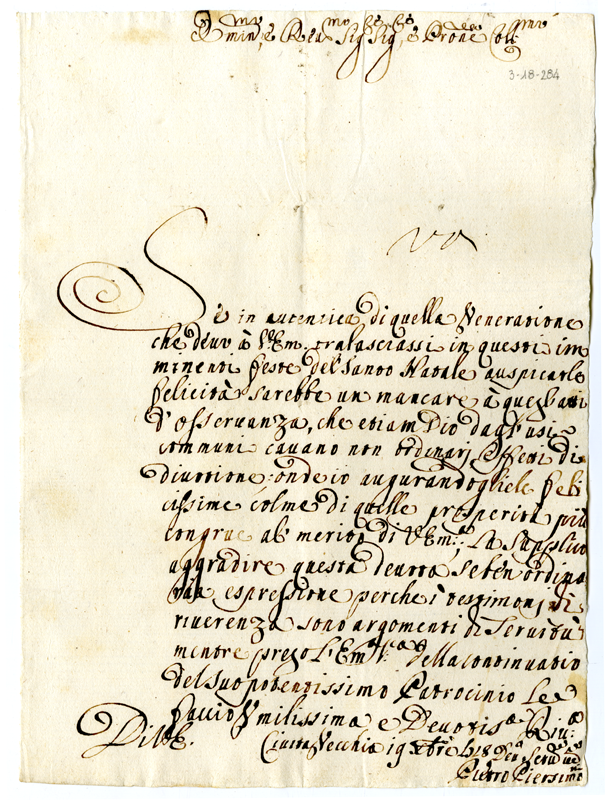 Emin.mo e Reu.mo Sig.re Sig.re e Prone Col.mo
3-18-284
Se in autentica di quella Veneratione
che deuo à V. Em. tralasciassi in questi im
minenti feste del Santo Natale auspicarle
felicità sarebbe un mancare à quegl'atti
d'osseruanza, che etiam Dio dagl'usi
communi cauano non ordinarj effetti di
diuotione; onde io augurandogliele feli
cissime colme di quelle prosperità più
congrue al merito di V. Em.za La supplico
aggradire questa deuota se ben ordina
ria espressione perche i testimonj di
riuerenza sono argomenti di Seruitù
mentre prego l'Em.a V.a della continuatio
del suo potentissimo Patrocinio Le
faccio Vmilissima e Deuotis.a Riu.a
Di V. E.
Ciuita Vecchia 19 Xbre
Pietro Piersimo